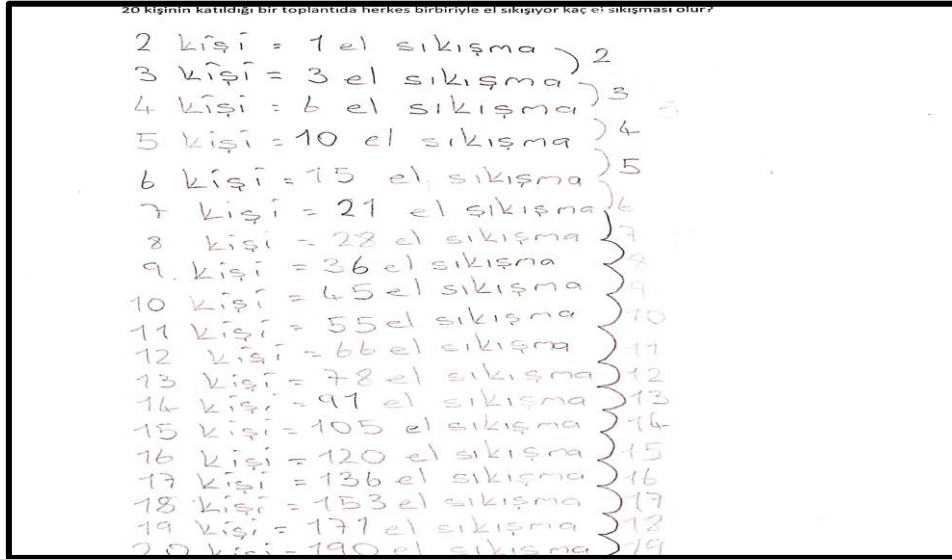 20 kişinin katıldığı bir toplantıda herkes birbiriyle el sıkışıyor kaç el sıkışması olur?
2 kişi = 1 el sıkışma
2
3 kişi = 3 el sıkışma
3
4 kişi = 6 el sıkışma
4
5 kişi = 10 el sıkışma
5
6 kişi = 15 el sıkışma
6
7 kişi = 21 el sıkışma
7
8 kişi = 28 el sıkışma
8
9. kişi = 36 el sıkışma
9
10 kişi = 45 el sıkışma
10
11 kişi = 55 el sıkışma
11
12 kişi = 66 el sıkışma
12
13 kişi = 78 el sıkışma
13
14 kişi = 91 el sıkışma
14
15 kişi = 105 el sıkışma
15
16 kişi = 120 el sıkışma
16
17 kişi = 136 el sıkışma
17
18 kişi = 153 el sıkışma
18
19 kişi = 171 el sıkışma
19
20 kişi = 190 el sıkışma